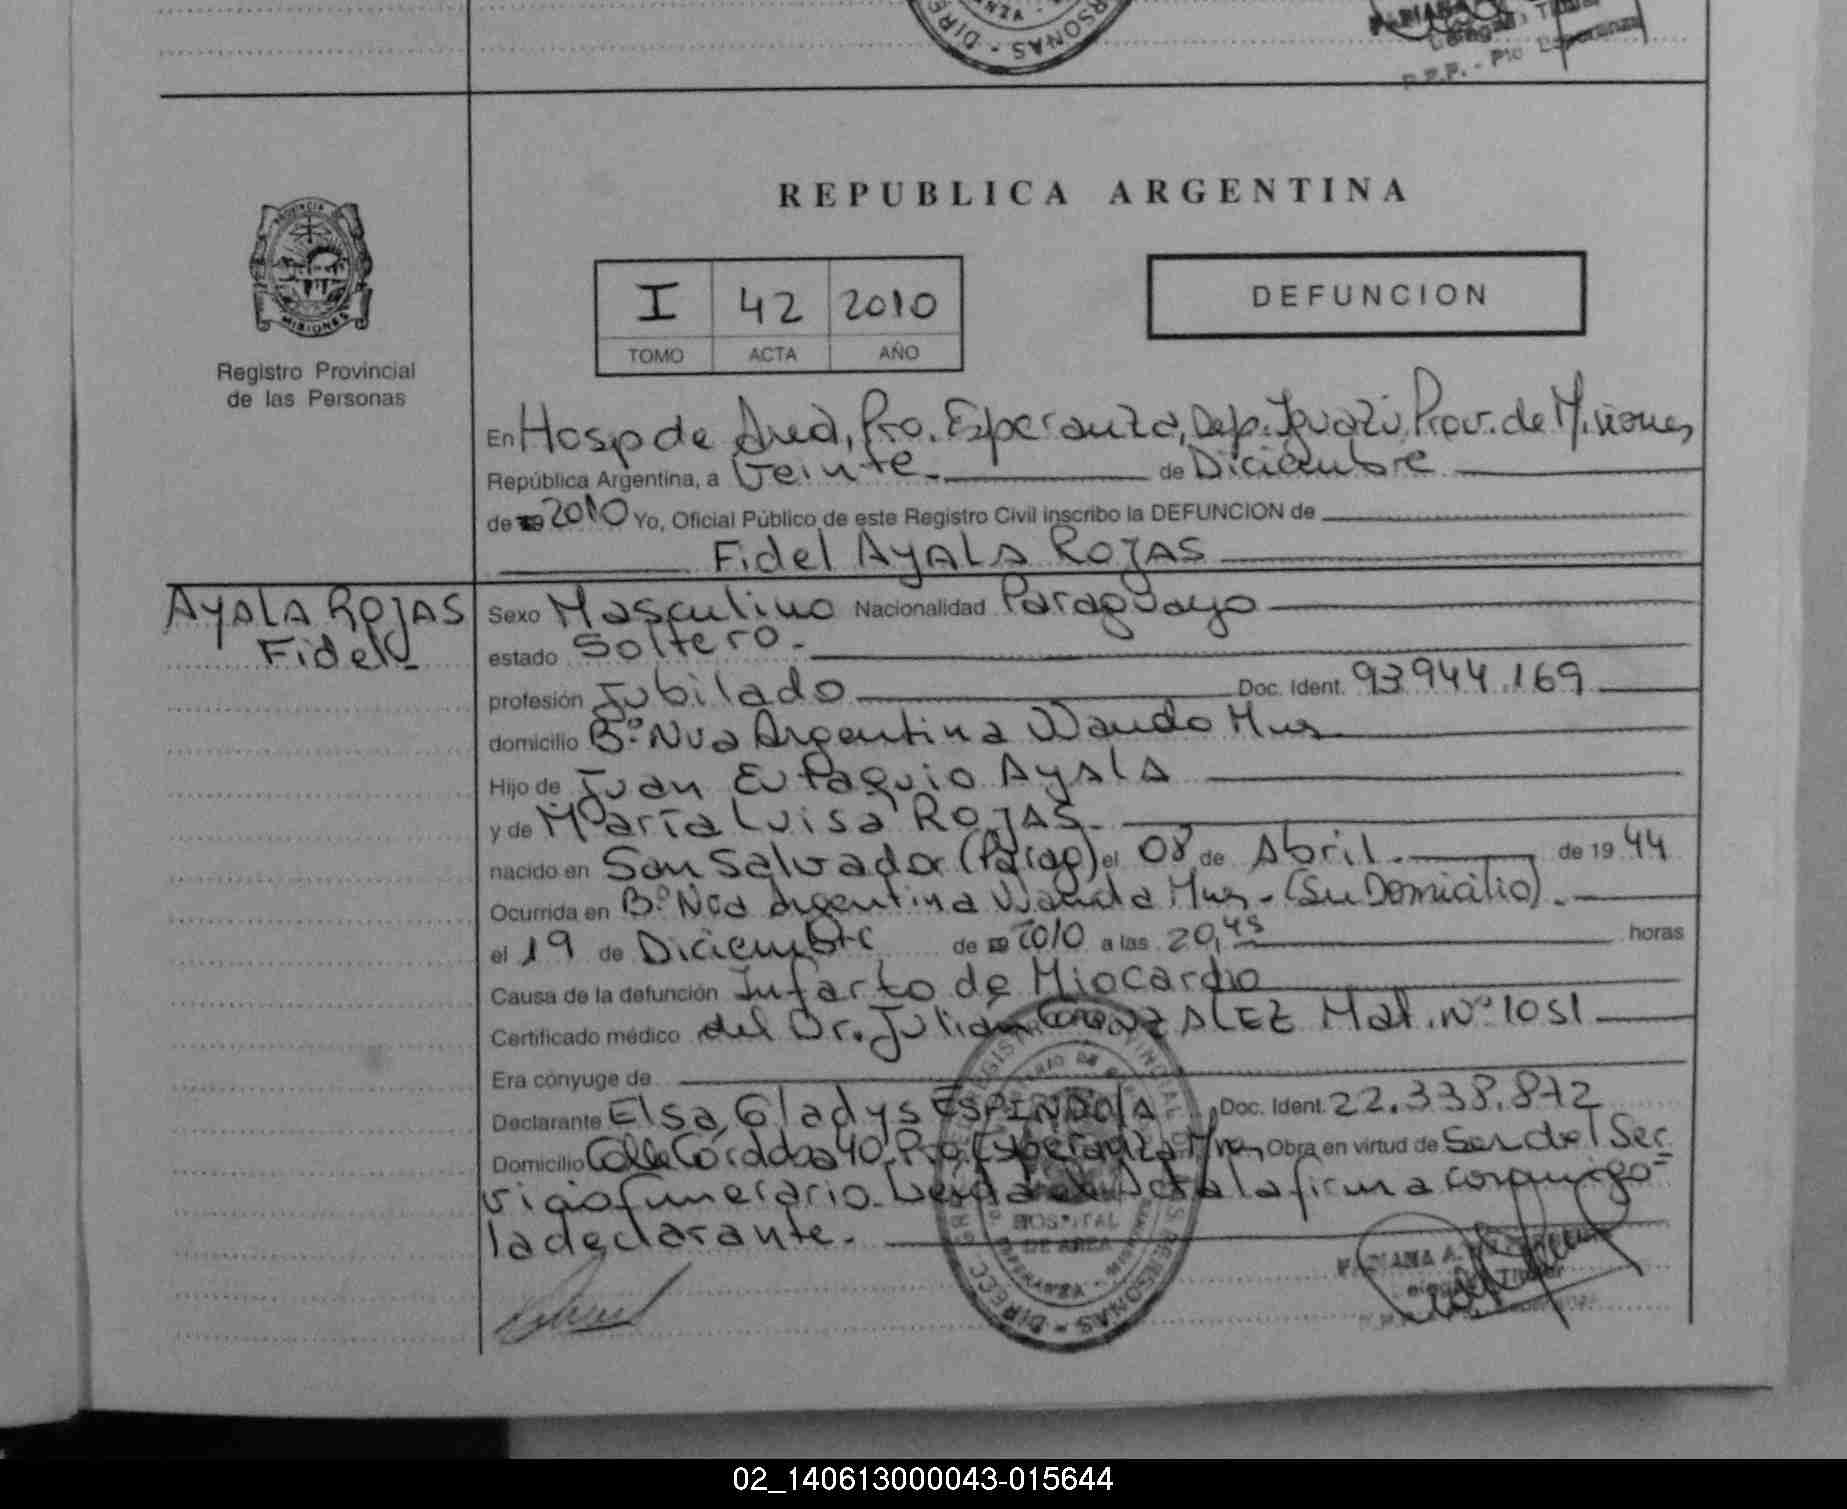 DIRE
ANZA
PERSONAS
R.P.P. - Pto Esperanza
REPUBLICA ARGENTINA
PROVINCIA
MISIONES
Registro Provincial
de las Personas
I 42 2010
TOMO ACTA AÑO
DEFUNCION
En Hosp de Area, Pto. Esperanza, Dep. Iguazú, Prov. de Misiones
República Argentina, a Veinte de Diciembre
de 19 2010 Yo, Oficial Público de este Registro Civil inscribo la DEFUNCION de
Fidel AYALA ROJAS
AYALA ROJAS
Fidel
Sexo Masculino Nacionalidad Paraguayo
estado Soltero.
profesión Jubilado Doc. Ident. 93944.169
domicilio Bº Nva Argentina Wanda Mnes
Hijo de Juan Eutaquio AyAlA
y de María Luisa ROJAS.
nacido en San Salvador (Parag) el 08 de Abril. de 19 44
Ocurrida en Bº Nva Argentina Wanda Mnes - (Su Domicilio).
el 19 de Diciembre de 19 2010 a las 20,45 horas
Causa de la defunción Infarto de Miocardio
Certificado médico del Dr. Julián GonzALEZ Mat. Nº 1051
Era cónyuge de
Declarante Elsa Gladys ESPINDOLA Doc. Ident. 22.338.872
Domicilio Calle Córdoba 40. Pto Esperanza Mnes Obra en virtud de Ser del Ser
vicio funerario. Leida el Acta la firma conmigo
la declarante.
HOSPITAL
DE AREA
ESPERANZA - MISIONES
DIRECC
PERSONAS